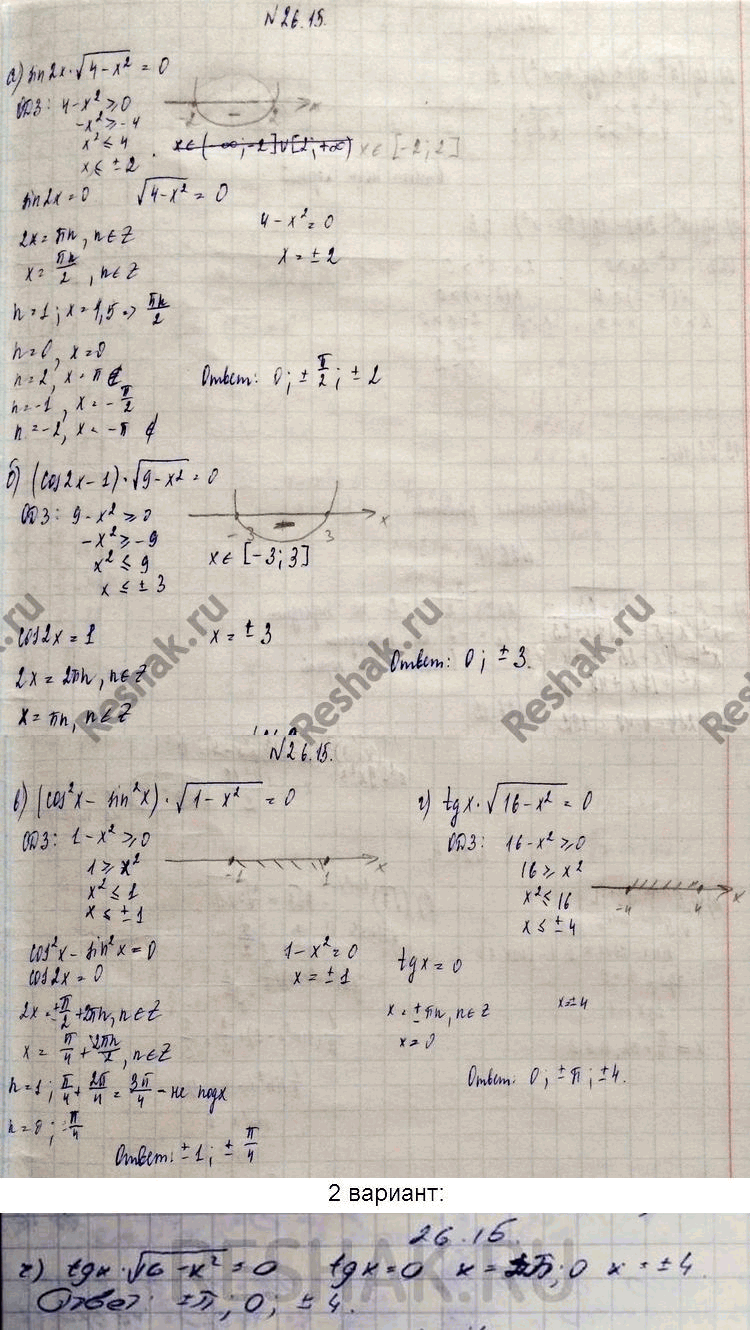 N26.15.
а) sin2x·√4-x² = 0
ОДЗ: 4-x² ≥ 0
-x² ≥ -4
x² ≤ 4
x ≤ ±2
-2 - 2 x
x∈(-∞;-2]∪[2;+∞) x∈[-2;2]
sin2x=0 √4-x² = 0
2x=πn, n∈Z 4-x²=0
x=πn/2, n∈Z x=±2
n=1; x=1,5 => πn/2
n=0, x=0
n=2, x=π ∉
n=-1, x=-π/2
n=-2, x=-π ∉
Ответ: 0; ±π/2; ±2
б) (cos2x-1)·√9-x² = 0
ОДЗ: 9-x² ≥ 0
-x² ≥ -9
x² ≤ 9
x ≤ ±3
-3 - 3 x
x∈[-3;3]
cos2x=1 x=±3
2x=2πn, n∈Z
x=πn, n∈Z
Ответ: 0; ±3.
N26.15.
в) (cos²x-sin²x)·√1-x² = 0
ОДЗ: 1-x² ≥ 0
1 ≥ x²
x² ≤ 1
x ≤ ±1
-1 1 x
cos²x-sin²x=0 1-x²=0
cos2x=0 x=±1
2x=±π/2+2πn, n∈Z
x=π/4+2πn/2, n∈Z
n=1; π/4+2π/4=3π/4 - не подх
n=0; π/4
Ответ: ±1; ±π/4
г) tgx·√16-x² = 0
ОДЗ: 16-x² ≥ 0
16 ≥ x²
x² ≤ 16
x ≤ ±4
-4 4 x
tgx=0
x=±πn, n∈Z x=±4
x=0
Ответ: 0; ±π; ±4.
2 вариант:
26.15.
г) tgx·√16-x² = 0 tgx=0 x=±π; 0 x=±4.
Ответ: ±π; 0; ±4.
Reshak.ru
Reshak.ru
Reshak.ru
RESHAK.RU